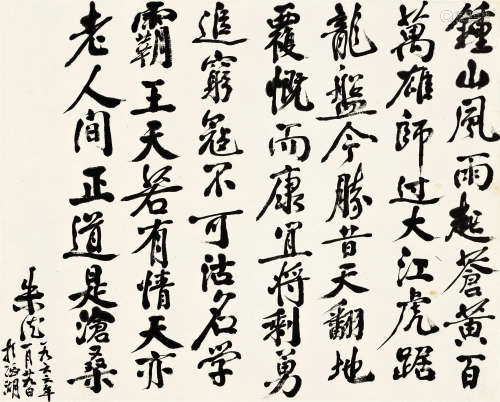 鍾山風雨起蒼黄百
萬雄師过大江虎踞
龍盤今勝昔天翻地
覆慨而康宜將剩勇
追窮寇不可沽名学
霸王天若有情天亦
老人间正道是滄桑
一九六三年
一月廿九日
朱德